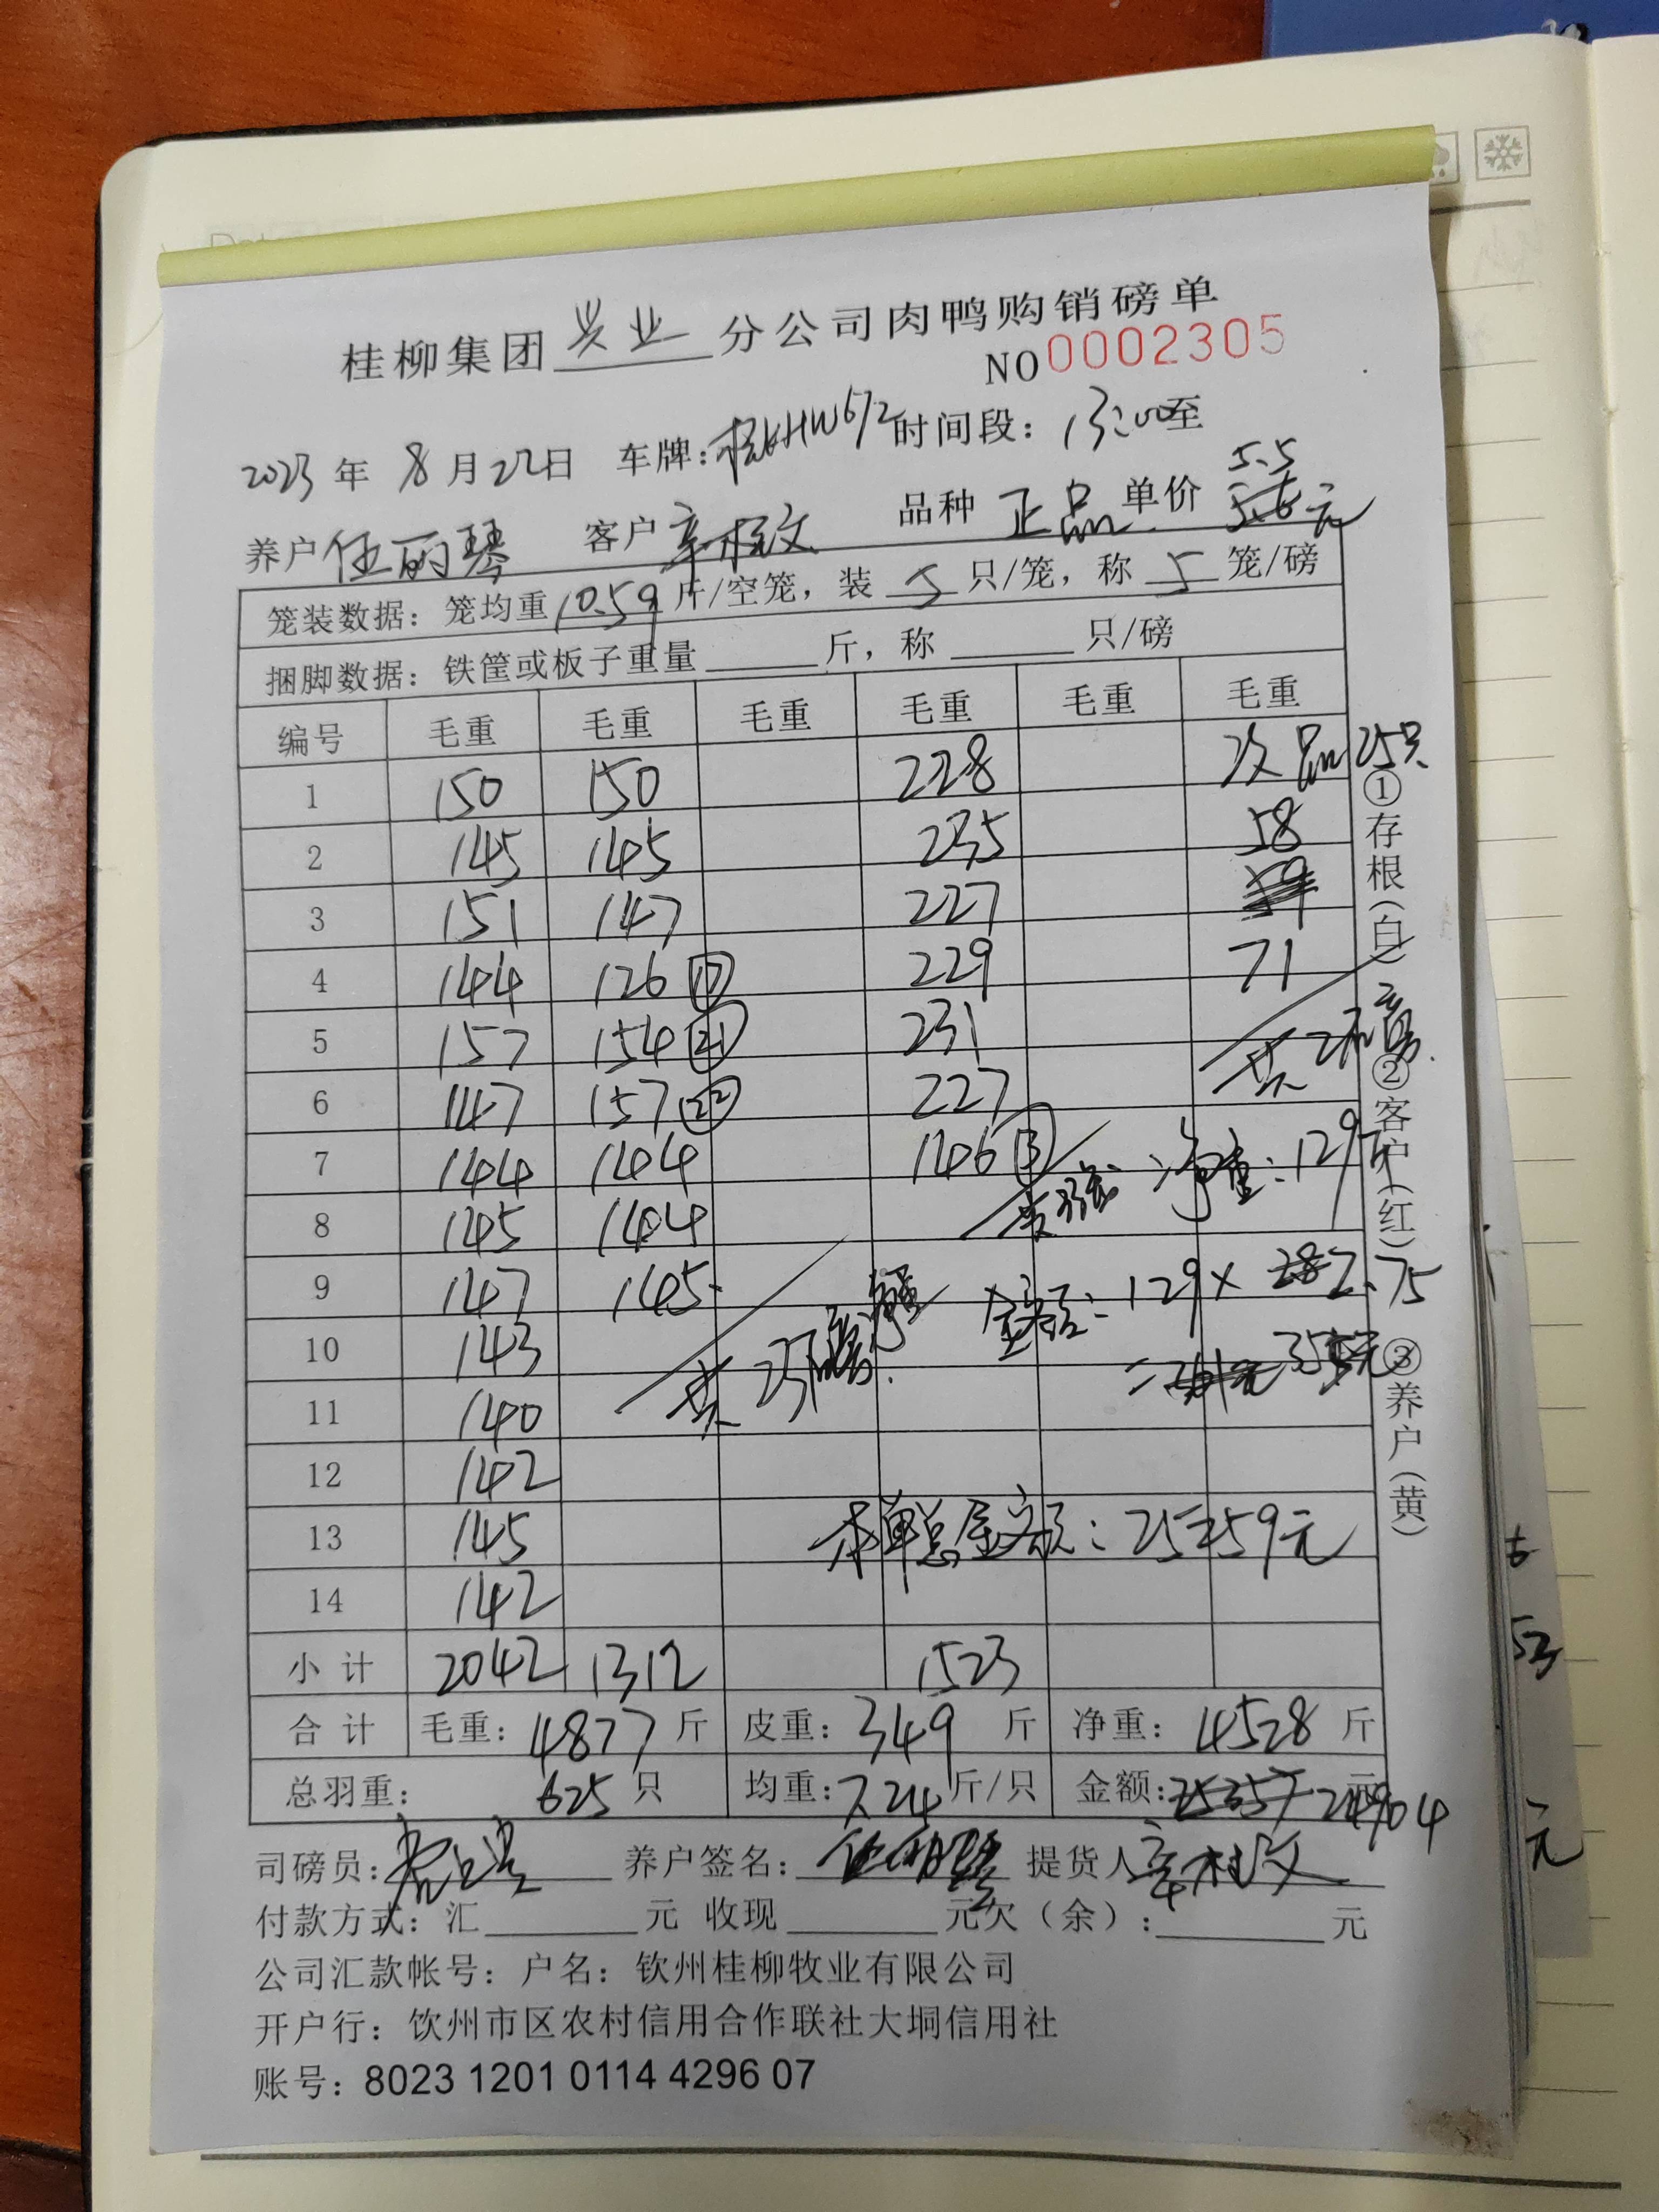 桂柳集团兴业分公司肉鸭购销磅单
NO0002305
2023年8月22日 车牌:桂KHW672时间段:13:00至
5.5
养户任丽琴 客户辛桂文 品种 正品 单价 5.6元
笼装数据:笼均重10.59斤/空笼,装 5 只/笼,称 5 笼/磅
捆脚数据:铁筐或板子重量____斤,称____只/磅
编号 毛重 毛重 毛重 毛重 毛重 毛重
1 150 150 228 次品25只
2 145 145 235 58
3 151 147 227 59
4 144 126 ⑰ 229 71
5 157 154 ㉑ 231 共2磅
6 147 157 ㉒ 227
7 144 144 146 共7磅 净重:129斤
8 145 144
9 147 145 金额:129×2.75
10 143 共23磅 =355元
11 140
12 142
13 145 本单总金额:25259元
14 142
小计 2042 1312 1523
合计 毛重:4877斤 皮重:349斤 净重:4528斤
总羽重: 625只 均重:7.24斤/只 金额:25357元 24904
司磅员: 养户签名:任丽琴 提货人辛桂文
付款方式:汇____元 收现____元欠(余):____元
公司汇款帐号:户名:钦州桂柳牧业有限公司
开户行:钦州市区农村信用合作联社大垌信用社
账号:8023 1201 0114 4296 07
①存根(白) ②客户(红) ③养户(黄)
53
元